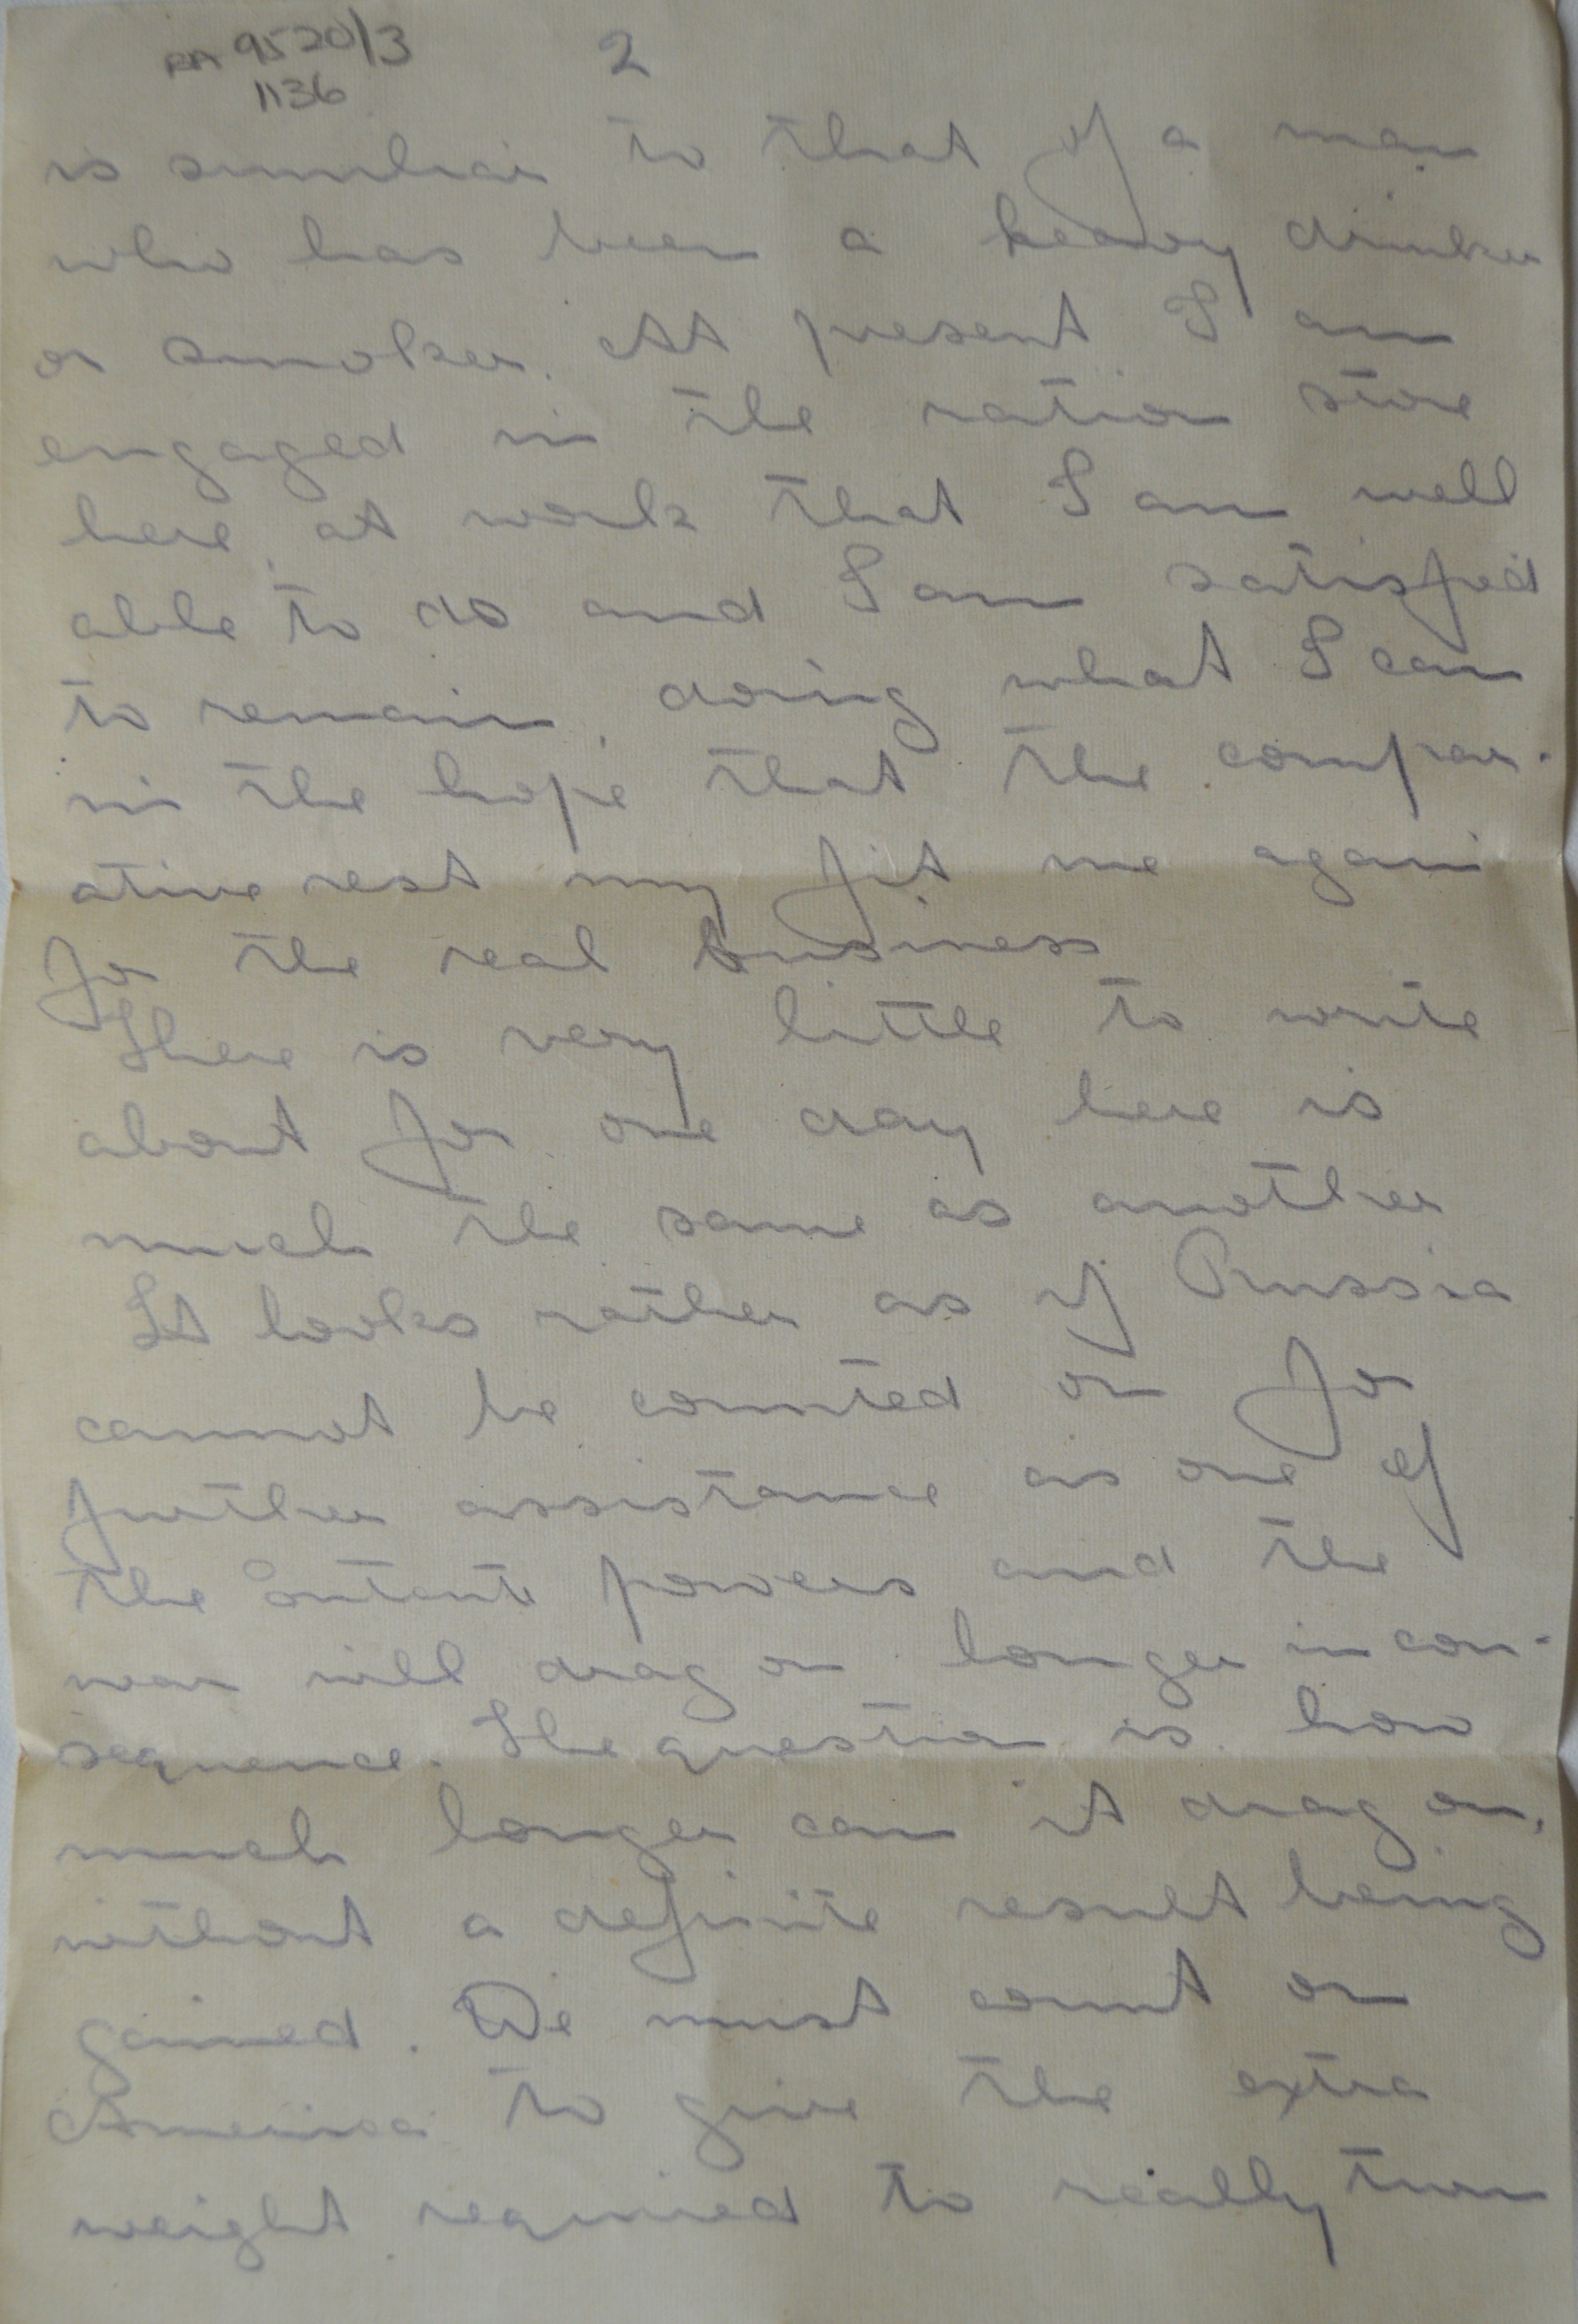 RA 9520/3
1136
2
is similiar to that of a man
who has been a heavy drinker
or smoker. At present I am
engaged in the ration store
here, at work that I am well
able to do and I am satisfied
to remain, doing what I can
in the hope that the compar-
ative rest my fit me again
for the real business
There is very little to write
about for one day here is
much the same as another
It looks rather as if Russia
cannot be counted on for
further assistance as one of
the Entente powers and the
war will drag on longer in con-
sequence. The question is how
much longer can it drag on,
without a definite result being
gained. We must count on
America to give the extra
weight required to really turn